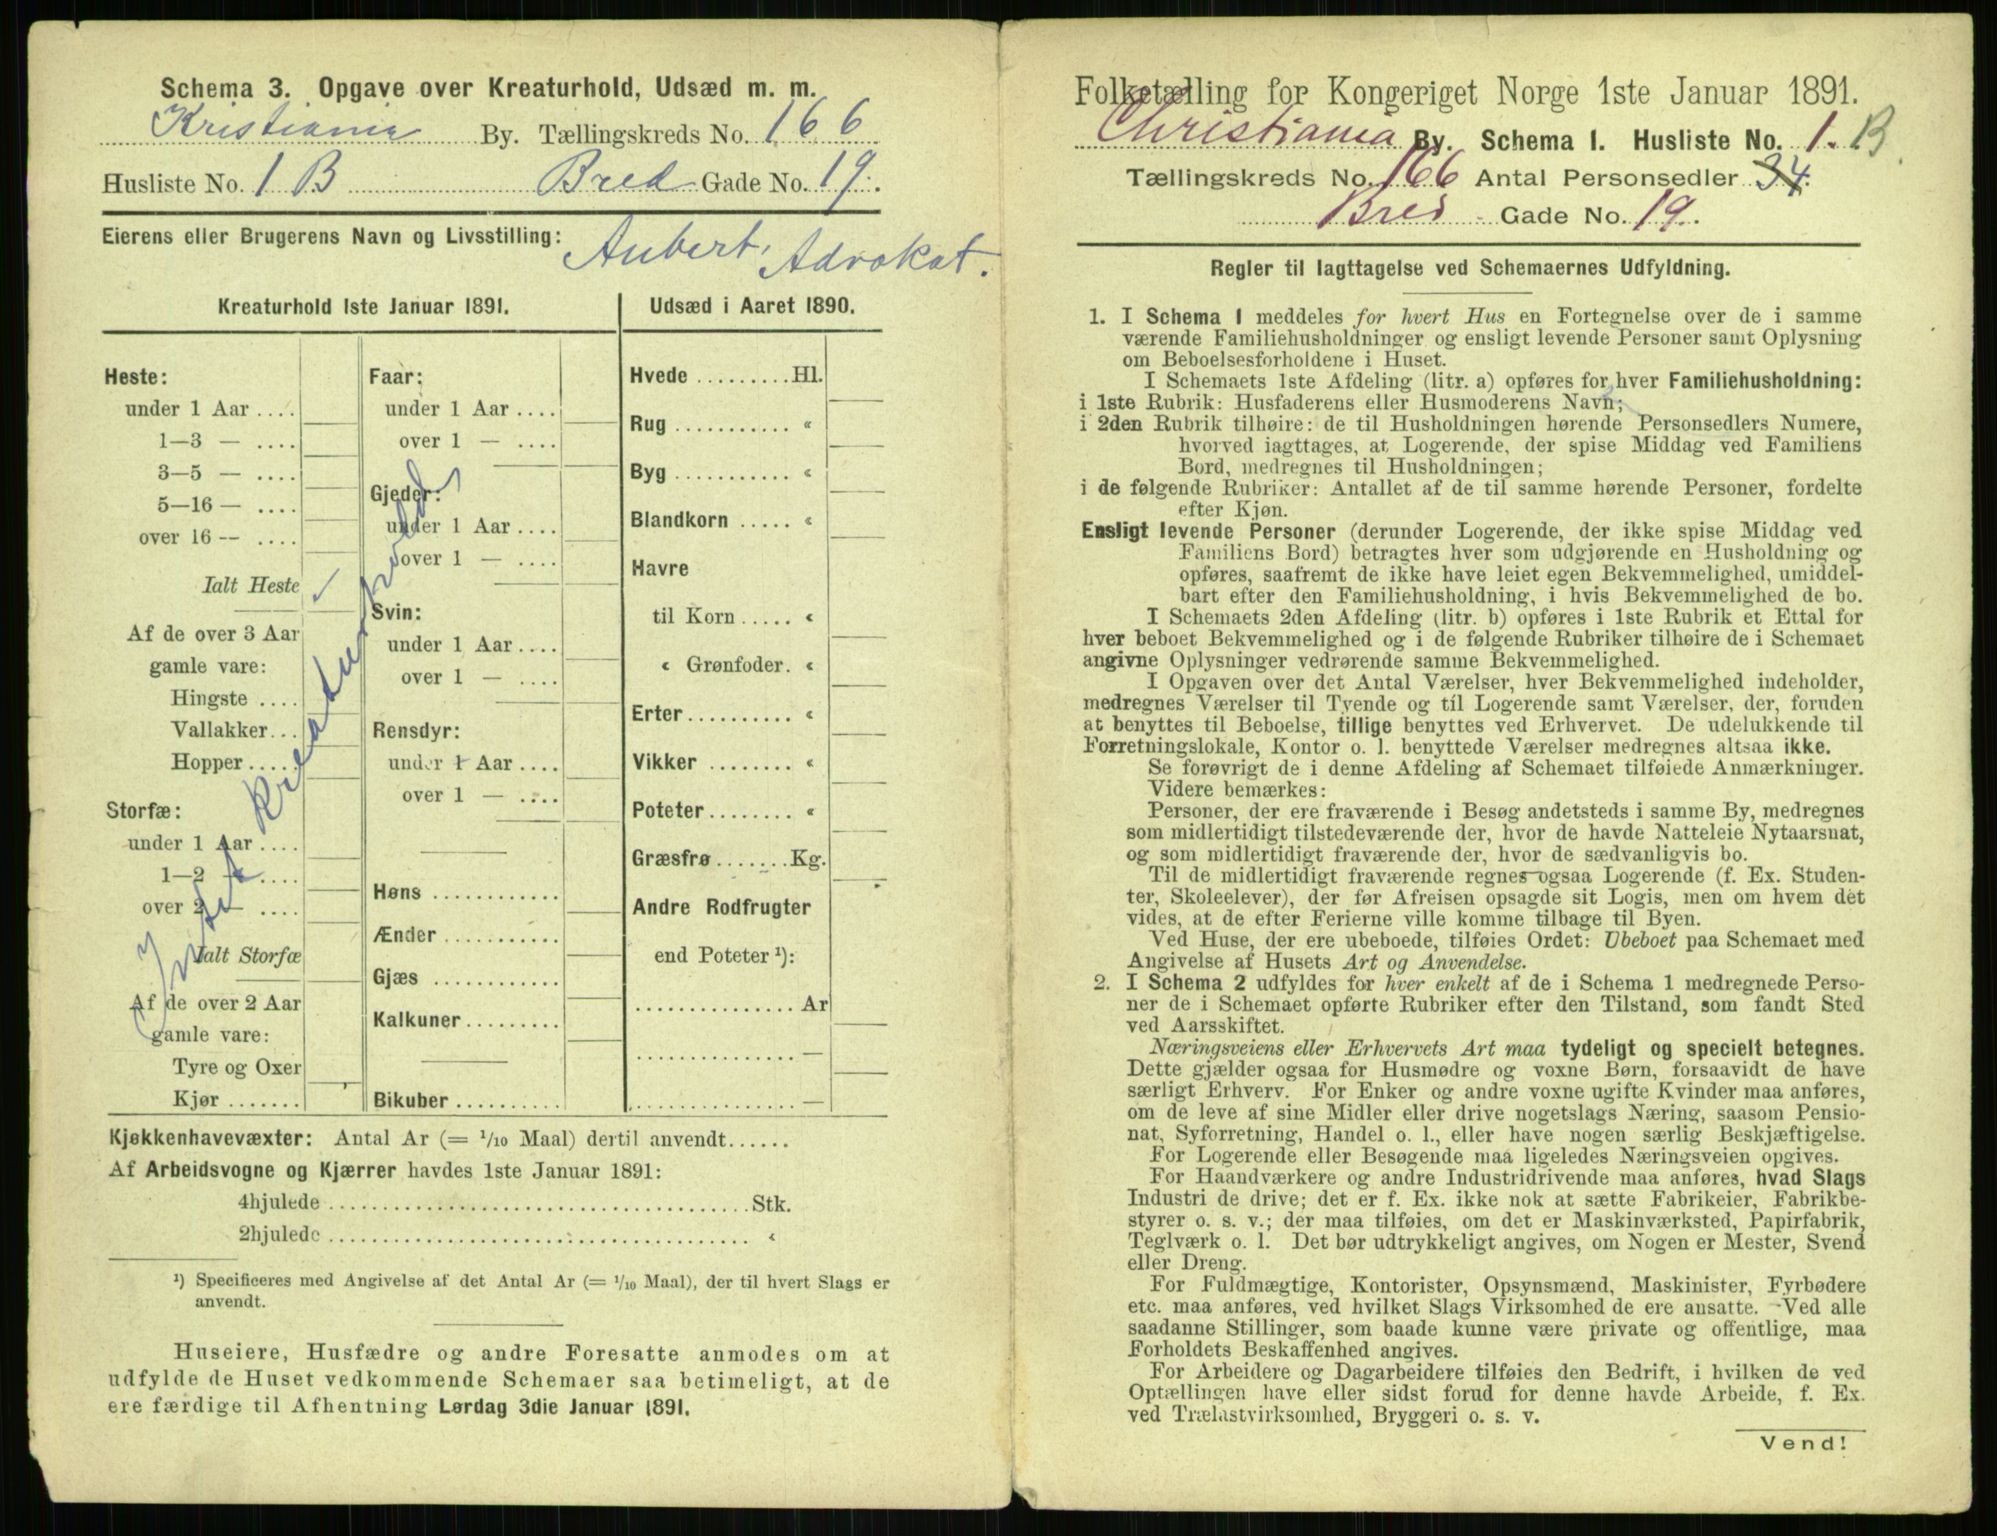 Schema 3. Opgave over Kreaturhold, Udsæd m. m.
Kristiania By. Tællingskreds No. 166
Husliste No. 1 B Bred Gade No. 19.
Eierens eller Brugerens Navn og Livsstilling: Aubert, Advokat.
Kreaturhold 1ste Januar 1891.
Heste:
under 1 Aar ....
1—3 — ....
3—5 — ....
5—16 — ....
over 16 — ....
Ialt Heste
Af de over 3 Aar
gamle vare:
Hingste ....
Vallakker...
Hopper .....
Storfæ:
under 1 Aar ....
1—2 — ....
over 2 — ....
Ialt Storfæ
Af de over 2 Aar
gamle vare:
Tyre og Oxer
Kjør .......
Intet Kreaturhold
Faar:
under 1 Aar ....
over 1 — ....
Gjeder:
under 1 Aar ....
over 1 — ....
Svin:
under 1 Aar ....
over 1 — ....
Rensdyr:
under 1 Aar ....
over 1 — ....
Høns ............
Ænder ...........
Gjæs ............
Kalkuner.........
Bikuber ..........
Udsæd i Aaret 1890.
Hvede .........Hl.
Rug ........... «
Byg ........... «
Blandkorn ..... «
Havre
til Korn ..... «
« Grønfoder. «
Erter.......... «
Vikker ........ «
Poteter........ «
Græsfrø .......Kg.
Andre Rodfrugter
end Poteter ¹):
............... Ar
............... —
............... —
Kjøkkenhavevæxter: Antal Ar (= 1/10 Maal) dertil anvendt......
Af Arbeidsvogne og Kjærrer havdes 1ste Januar 1891:
4hjulede ........................................Stk.
2hjulede ........................................ «
¹) Specificeres med Angivelse af det Antal Ar (= 1/10 Maal), der til hvert Slags er
anvendt.
Huseiere, Husfædre og andre Foresatte anmodes om at
udfylde de Huset vedkommende Schemaer saa betimeligt, at de
ere færdige til Afhentning Lørdag 3die Januar 1891.
Folketælling for Kongeriget Norge 1ste Januar 1891.
Christiania By. Schema 1. Husliste No. 1. B.
Tællingskreds No. 166 Antal Personsedler 34.
Bred - Gade No. 19.
Regler til Iagttagelse ved Schemaernes Udfyldning.
1. I Schema 1 meddeles for hvert Hus en Fortegnelse over de i samme
værende Familiehusholdninger og ensligt levende Personer samt Oplysning
om Beboelsesforholdene i Huset.
I Schemaets 1ste Afdeling (litr. a) opføres for hver Familiehusholdning:
i 1ste Rubrik: Husfaderens eller Husmoderens Navn;
i 2den Rubrik tilhøire: de til Husholdningen hørende Personsedlers Numere,
hvorved iagttages, at Logerende, der spise Middag ved Familiens
Bord, medregnes til Husholdningen;
i de følgende Rubriker: Antallet af de til samme hørende Personer, fordelte
efter Kjøn.
Ensligt levende Personer (derunder Logerende, der ikke spise Middag ved
Familiens Bord) betragtes hver som udgjørende en Husholdning og
opføres, saafremt de ikke have leiet egen Bekvemmelighed, umiddel-
bart efter den Familiehusholdning, i hvis Bekvemmelighed de bo.
I Schemaets 2den Afdeling (litr. b) opføres i 1ste Rubrik et Ettal for
hver beboet Bekvemmelighed og i de følgende Rubriker tilhøire de i Schemaet
angivne Oplysninger vedrørende samme Bekvemmelighed.
I Opgaven over det Antal Værelser, hver Bekvemmelighed indeholder,
medregnes Værelser til Tyende og til Logerende samt Værelser, der, foruden
at benyttes til Beboelse, tillige benyttes ved Erhvervet. De udelukkende til
Forretningslokale, Kontor o. l. benyttede Værelser medregnes altsaa ikke.
Se forøvrigt de i denne Afdeling af Schemaet tilføiede Anmærkninger.
Videre bemærkes:
Personer, der ere fraværende i Besøg andetsteds i samme By, medregnes
som midlertidigt tilstedeværende der, hvor de havde Natteleie Nytaarsnat,
og som midlertidigt fraværende der, hvor de sædvanligvis bo.
Til de midlertidigt fraværende regnes ogsaa Logerende (f. Ex. Studen-
ter, Skoleelever), der før Afreisen opsagde sit Logis, men om hvem det
vides, at de efter Ferierne ville komme tilbage til Byen.
Ved Huse, der ere ubeboede, tilføies Ordet: Ubeboet paa Schemaet med
Angivelse af Husets Art og Anvendelse.
2. I Schema 2 udfyldes for hver enkelt af de i Schema 1 medregnede Perso-
ner de i Schemaet opførte Rubriker efter den Tilstand, som fandt Sted
ved Aarsskiftet.
Næringsveiens eller Erhvervets Art maa tydeligt og specielt betegnes.
Dette gjælder ogsaa for Husmødre og voxne Børn, forsaavidt de have
særligt Erhverv. For Enker og andre voxne ugifte Kvinder maa anføres,
om de leve af sine Midler eller drive nogetslags Næring, saasom Pensio-
nat, Syforretning, Handel o. l., eller have nogen særlig Beskjæftigelse.
For Logerende eller Besøgende maa ligeledes Næringsveien opgives.
For Haandværkere og andre Industridrivende maa anføres, hvad Slags
Industri de drive; det er f. Ex. ikke nok at sætte Fabrikeier, Fabrikbe-
styrer o. s. v.; der maa tilføies, om det er Maskinværksted, Papirfabrik,
Teglværk o. l. Det bør udtrykkeligt angives, om Nogen er Mester, Svend
eller Dreng.
For Fuldmægtige, Kontorister, Opsynsmænd, Maskinister, Fyrbødere
etc. maa anføres, ved hvilket Slags Virksomhed de ere ansatte. Ved alle
saadanne Stillinger, som baade kunne være private og offentlige, maa
Forholdets Beskaffenhed angives.
For Arbeidere og Dagarbeidere tilføies den Bedrift, i hvilken de ved
Optællingen have eller sidst forud for denne havde Arbeide, f. Ex.
ved Trælastvirksomhed, Bryggeri o. s. v.
Vend!